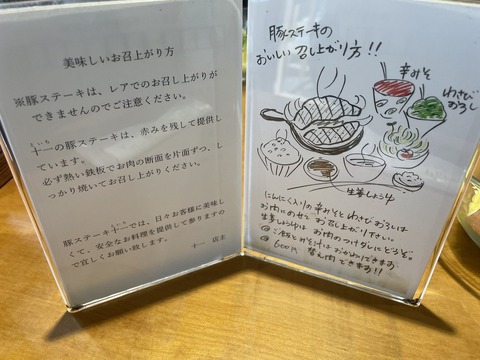 美味しいお召上がり方
※豚ステーキは、レアでのお召し上がりが
できませんのでご注意ください。
といち
十一の豚ステーキは、赤みを残して提供し
ています。
必ず熱い鉄板でお肉の断面を片面ずつ、し
っかり焼いてお召し上がりください。
豚ステーキ十一では、日々お客様に美味し
くて、安全なお料理を提供して参りますの
で宜しくお願い致します。
十一 店主
豚ステーキの
おいしい召し上がり方!!
辛みそ
わさび
おろし
生姜しょう油
にんにく入りの辛みそとわさびおろしは
お肉にのせてお召し上がり下さい。
生姜しょうゆはお肉のつけダレにどうぞ。
ご飯とみそ汁はおかわりできます
600円 替え肉できます!!